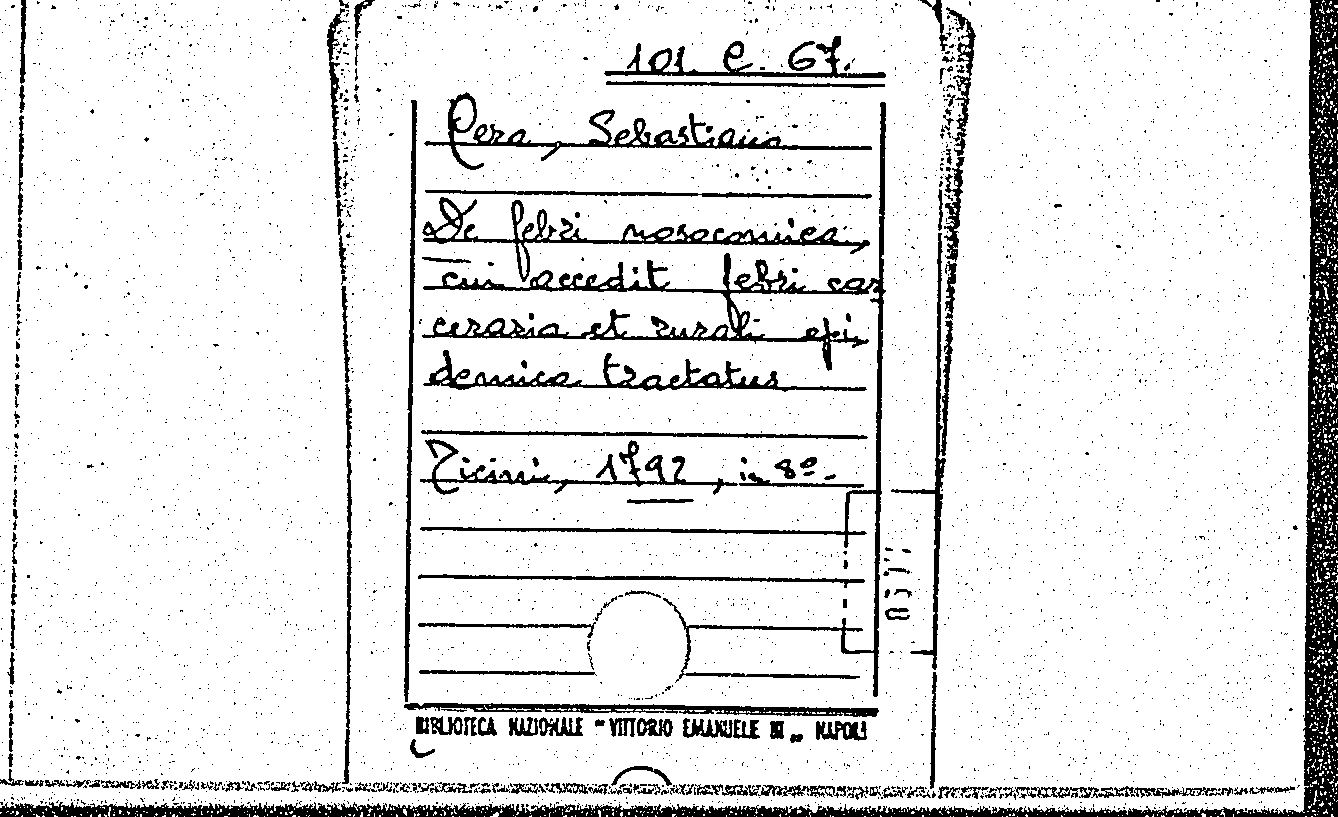 101. C. 67.
Pera, Sebastiano
De febri nosocomica,
cui accedit febri car
ceraria et rurali epi,
demica tractatus
Ticini, 1792, in 8º.
BIBLIOTECA NAZIONALE "VITTORIO EMANUELE III„ NAPOLI